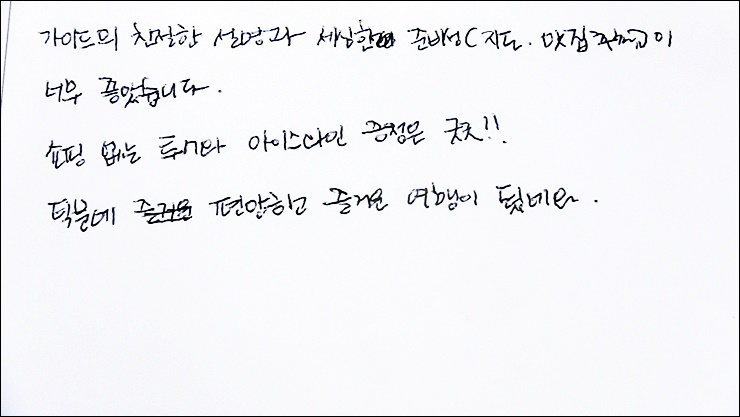 가이드의 친절한 설명과 세심한 준비성(지도. 맛집 )이
너무 좋았습니다.
쇼핑 없는 투어와 아이스와인 증정은 굿굿!!.
덕분에 편안하고 즐거운 여행이 됐네요.